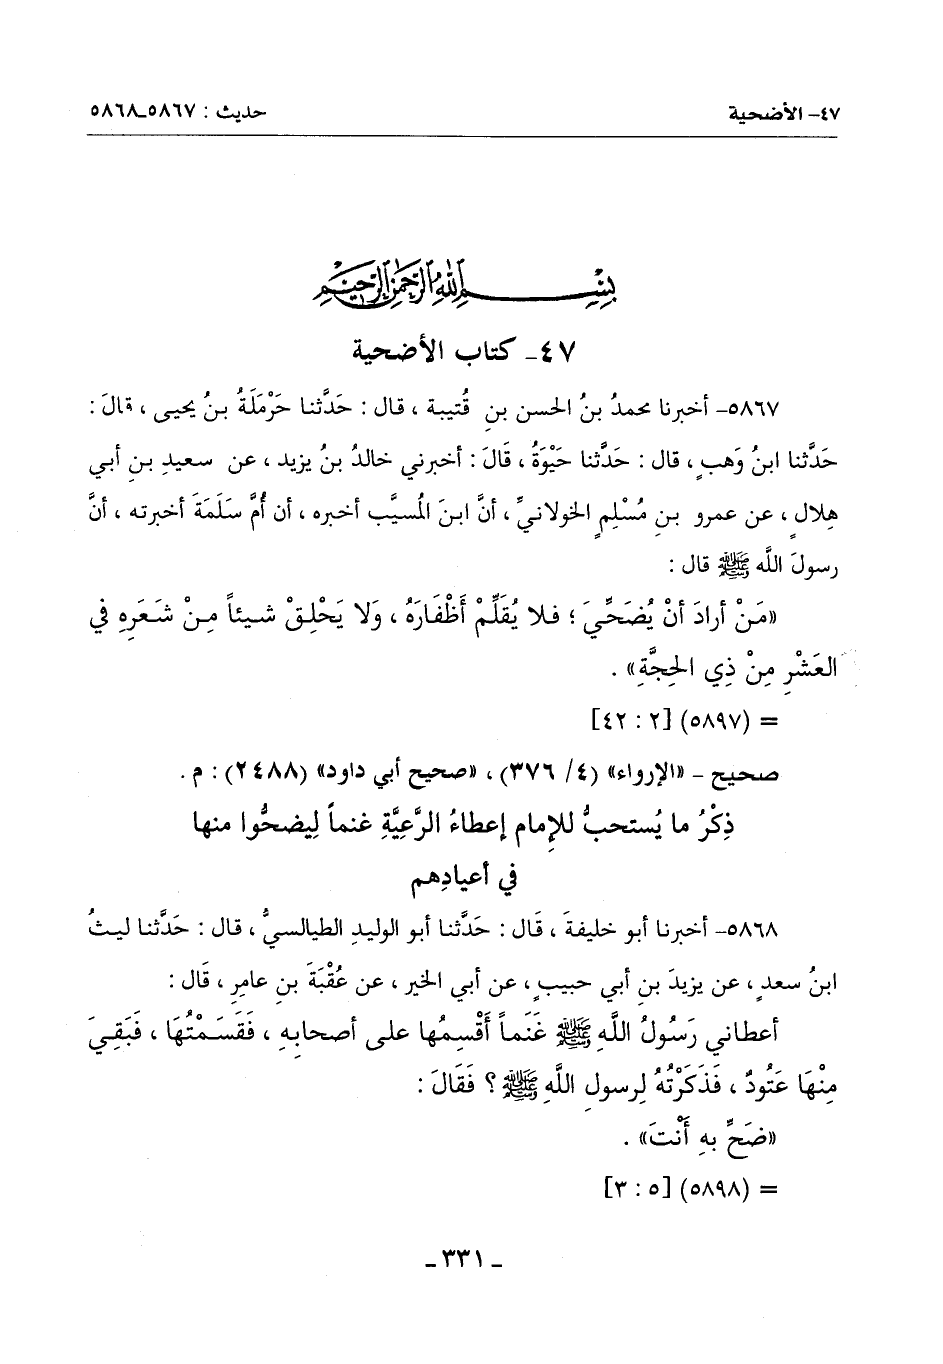 ٤٧- الأضحية
حديث : ٥٨٦٧ـ٥٨٦٨
بِسْمِ اللهِ الرَّحْمٰنِ الرَّحِيْمِ
٤٧- كتاب الأضحية
٥٨٦٧- أخبرنا محمدُ بنُ الحسن بنِ قُتيبة ، قال : حَدَّثنا حَرْمَلَةُ بنُ يحيى ، قالَ :
حَدَّثنا ابنُ وَهبٍ ، قال : حَدَّثنا حَيْوَةُ ، قَالَ : أخبرني خالدُ بنُ يزيد ، عن سعيدِ بنِ أبي
هِلالٍ ، عن عمرو بنِ مُسْلِمٍ الخولانيِّ ، أنَّ ابنَ المُسيَّب أخبره ، أن أُمَّ سَلَمَةَ أخبرته ، أنَّ
رسولَ اللَّه ﷺ قال :
«مَنْ أرادَ أنْ يُضَحِّيَ ؛ فلا يُقَلِّمْ أَظْفَارَهُ ، وَلا يَحْلِقْ شيئاً مِنْ شَعَرِهِ فِي
العَشْرِ مِنْ ذِي الحِجَّةِ» .
= (٥٨٩٧) [٢ : ٤٢]
صحيح - «الإرواء» (٤/ ٣٧٦) ، «صحيح أبي داود» (٢٤٨٨) : م .
ذِكْرُ ما يُستحبُّ للإمامِ إعطاءُ الرَّعِيَّةِ غنماً لِيضحُّوا منها
في أعيادِهم
٥٨٦٨- أخبرنا أبو خليفةَ ، قَال : حَدَّثنا أبو الوليدِ الطيالسيُّ ، قال : حَدَّثنا ليثُ
ابنُ سعدٍ ، عن يزيدَ بنِ أبي حبيبٍ ، عن أبي الخير ، عن عُقْبَةَ بنِ عامرٍ ، قَال :
أعطاني رَسُولُ اللَّهِ ﷺ غَنَماً أَقْسِمُها على أصحابِه ، فَقَسَمْتُهَا ، فَبَقِيَ
مِنْهَا عَتُودٌ ، فَذَكَرْتُهُ لِرسولِ اللَّهِ ﷺ ؟ فَقَالَ :
«ضَحِّ بِهِ أَنْتَ» .
= (٥٨٩٨) [٥ : ٣]
- ٣٣١ -